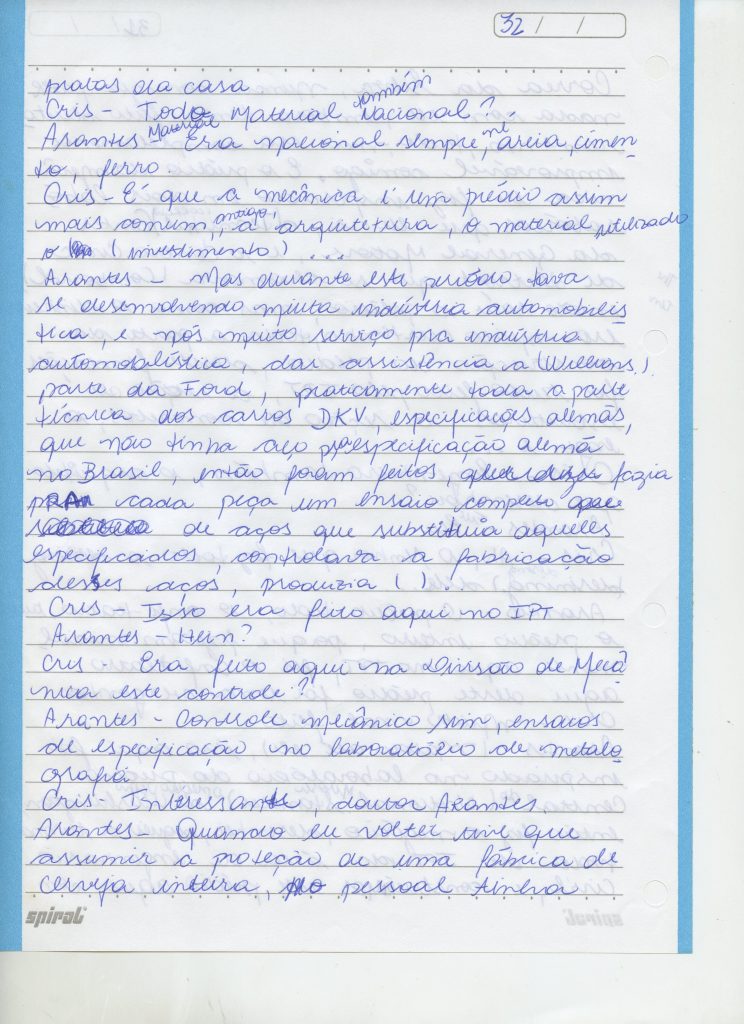 32 / /
pratas da casa
Cris - Todo Material também Nacional?
Arantes - Material Era nacional sempre, né, areia, cimen-
to, ferro.
Cris - É que a mecânica é um prédio assim
mais comum, antigo, a arquitetura, o material utilizado
o (investimento) ...
Arantes - Mas durante este período tava
se desenvolvendo muita indústria automobilis-
tica, e nós muito serviço pra indústria
automobilística, das assistência a (Willians.)
parte da Ford, praticamente toda a parte
técnica dos carros DKV, especificações alemãs,
que não tinha aço especificação alemã
no Brasil, então foram feitos, fazia
PRA cada peça um ensaio completo
de aços que substituia aqueles
especificados, controlava a fabricação
desses aços, produzia ( ) ...
Cris - Isso era feito aqui no IPT
Arantes - Hein?
Cris - Era feito aqui na Divisão de Mecâ-
nica este controle?
Arantes - Controle mecânico sim, ensaios
de especificação no laboratório de metalo-
grafia
Cris - Interessante, doutor Arantes.
Arantes - Quando eu voltei tive que
assumir a proteção de uma fábrica de
cerveja inteira, pessoal tinha
spiral